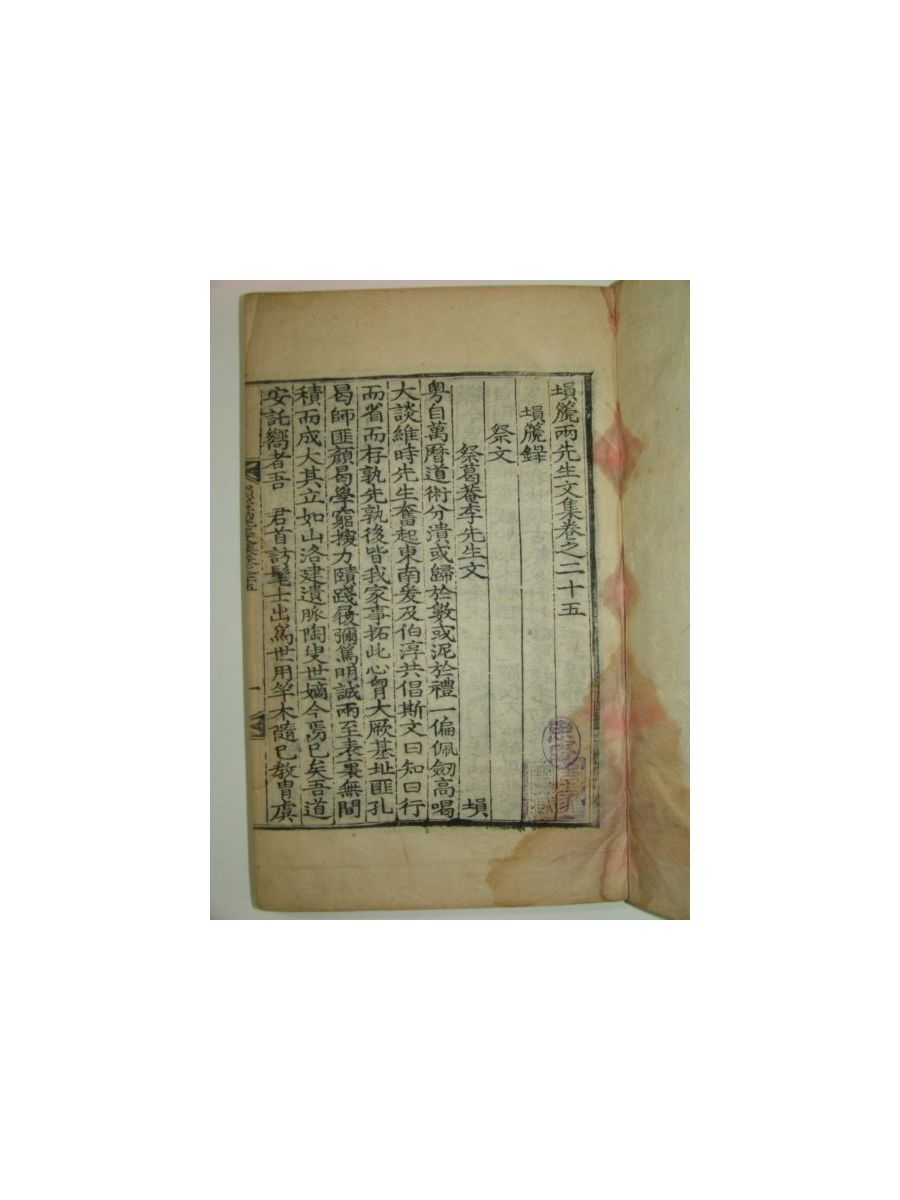 塤篪兩先生文集卷之二十五
塤篪錄
祭文
祭葛菴李先生文 塤
粵自萬曆道術分潰或歸於數或泥於禮一偏佩劒高喝
大談維時先生奮起東南爰及伯淳共倡斯文曰知曰行
而省而存孰先孰後皆我家事拓此心胷大厥基址匪孔
曷師匪顔曷學窮搜力賾踐履彌篤明誠兩至表裏無間
積而成大其立如山洛建遺脈陶叟世嫡今焉已矣吾道
安託嚮者吾 君首訪髦士出爲世用竿木隨已敎胄虞